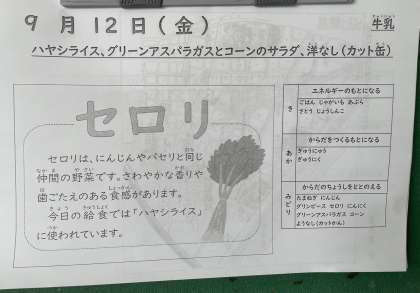 9月12日(金)
牛乳
ハヤシライス、グリーンアスパラガスとコーンのサラダ、洋なし(カット缶)
セロリ
セロリは、にんじんやパセリと同じ
仲間の野菜です。さわやかな香りや
歯ごたえのある食感があります。
今日の給食では「ハヤシライス」
に使われています。
エネルギーのもとになる
き
ごはん じゃがいも あぶら
さとう じょうしんこ
からだをつくるもとになる
あか
ぎゅうにゅう
ぎゅうにく
からだのちょうしをととのえる
みどり
たまねぎ にんじん
グリンピース セロリ にんにく
グリーンアスパラガス コーン
ようなし(カットかん)